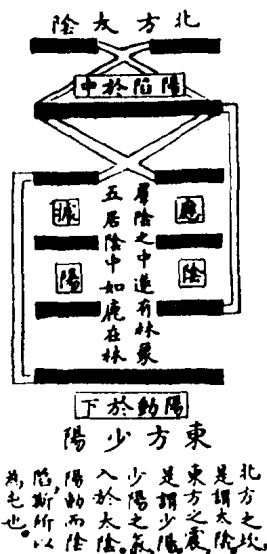 北方太陰
陽陷於中
應
陰
羣陰之中遂有林象
五居陰中如鹿在林
陽
陽動於下
東方少陽
北方之坎
是謂太陰。
東方之震
是謂少陽
少陽之氣
入於太陰。
陽動而陰
陷,斯所以
為屯也。